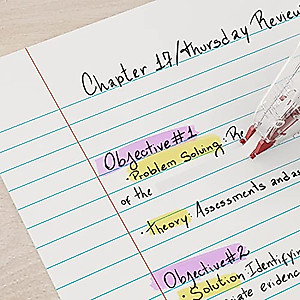 Chapter 17/Thursday Review
Objective #1
· Problem Solving: Re
of the
· Theory: Assessments and as
Objective #2
· Solution Identifying
iate evidenc